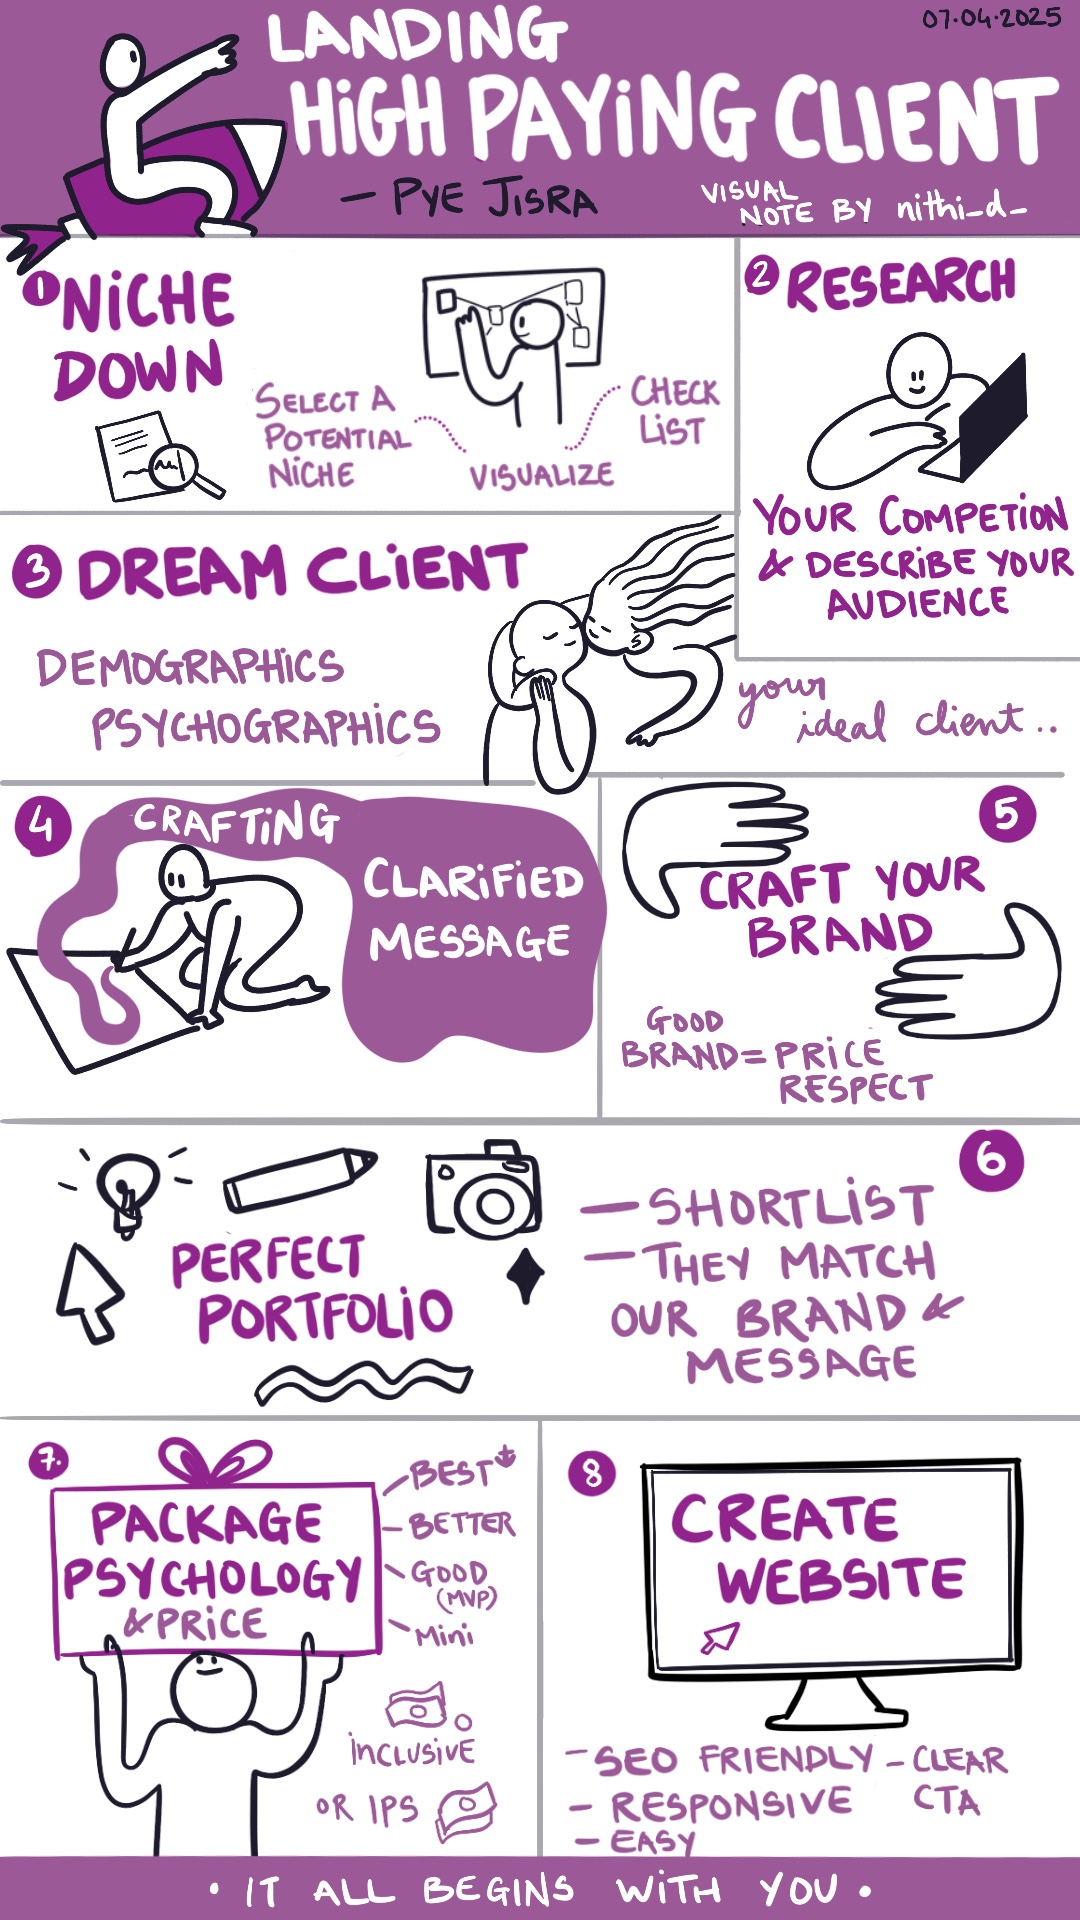 07.04.2025
LANDING
HIGH PAYING CLIENT
— PYE JISRA
VISUAL
NOTE BY nithi_d_
1 NICHE
DOWN
SELECT A
POTENTIAL
NICHE
VISUALIZE
CHECK
LIST
2 RESEARCH
YOUR COMPETION
& DESCRIBE YOUR
AUDIENCE
3 DREAM CLIENT
DEMOGRAPHICS
PSYCHOGRAPHICS
your
ideal client..
4
CRAFTING
CLARIFIED
MESSAGE
5
CRAFT YOUR
BRAND
GOOD
BRAND = PRICE
RESPECT
6
PERFECT
PORTFOLIO
— SHORTLIST
— THEY MATCH
OUR BRAND &
MESSAGE
7.
PACKAGE
PSYCHOLOGY
& PRICE
BEST
BETTER
GOOD
(MVP)
Mini
INCLUSIVE
OR IPS
8
CREATE
WEBSITE
- SEO FRIENDLY
- RESPONSIVE
- EASY
- CLEAR
CTA
• IT ALL BEGINS WITH YOU •